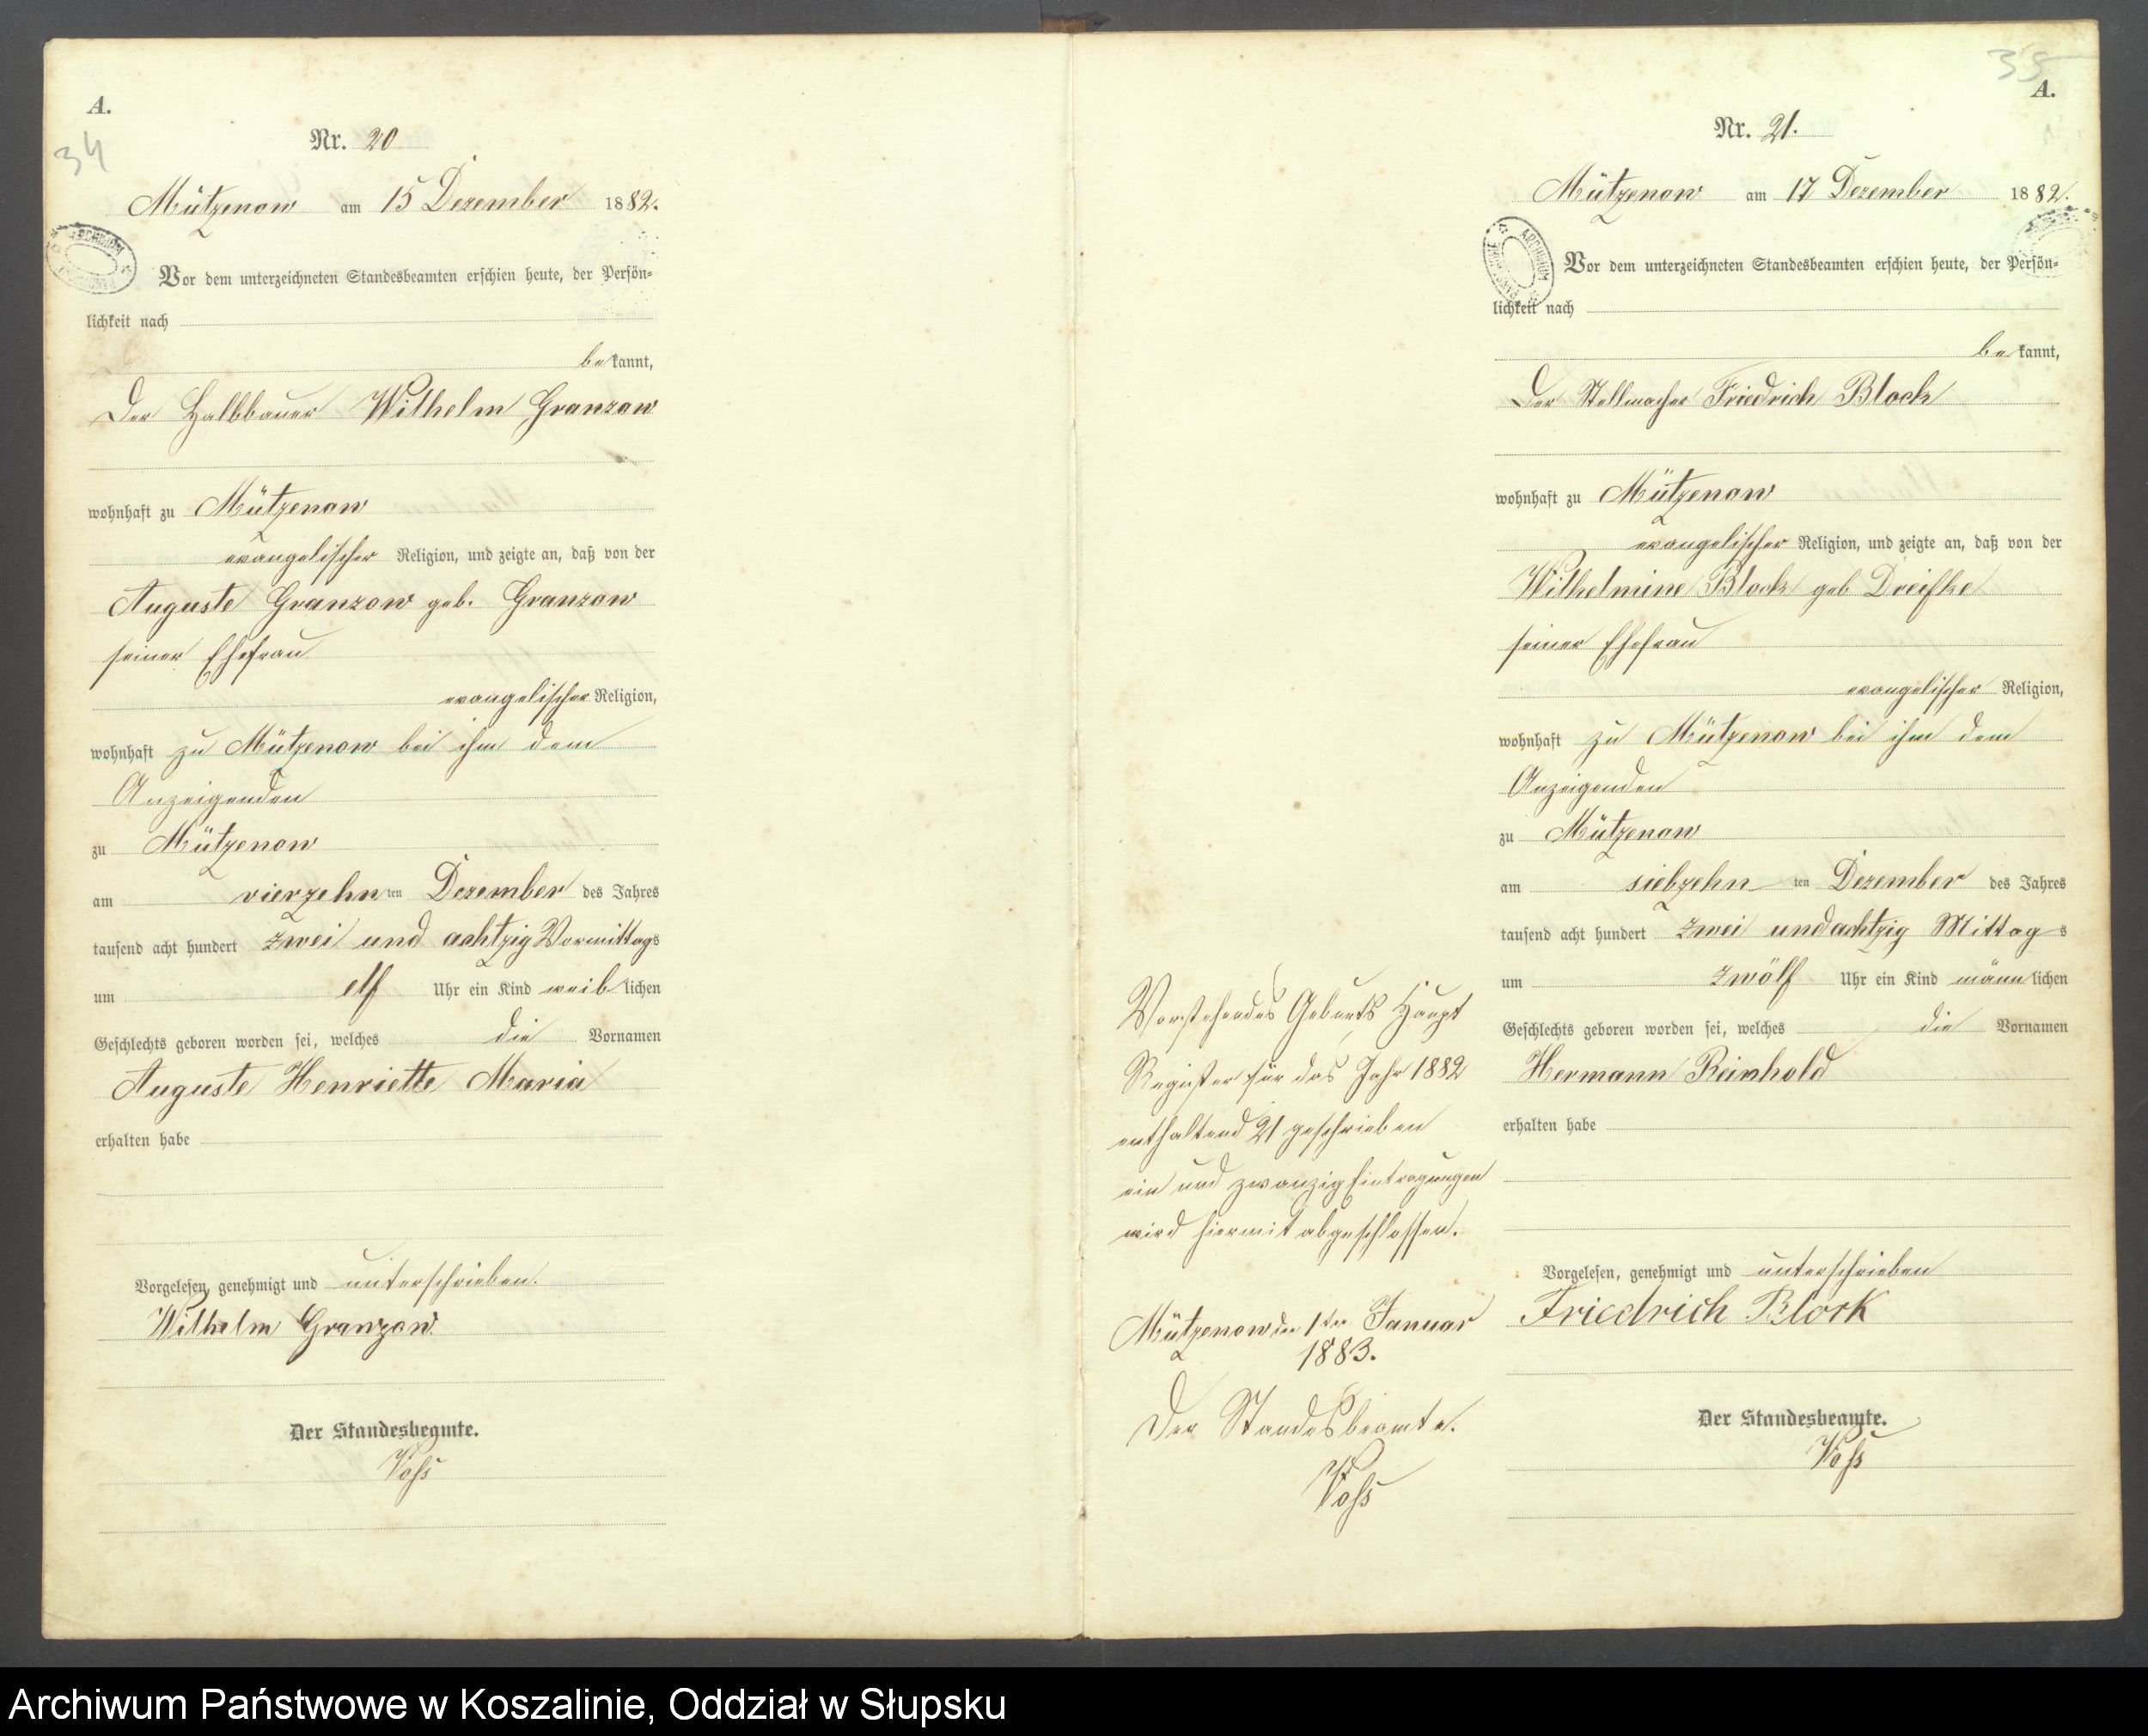 A.
34
Nr. 20
Mützenow am 15 Dezember 1882.
Vor dem unterzeichneten Standesbeamten erschien heute, der Persön=
lichkeit nach
bekannt,
Der Halbbauer Wilhelm Granzow
wohnhaft zu Mützenow
evangelischer Religion, und zeigte an, daß von der
Auguste Granzow geb. Granzow
seiner Ehefrau
evangelischer Religion,
wohnhaft zu Mützenow bei ihm dem
Anzeigenden
zu Mützenow
am vierzehnten Dezember des Jahres
tausend acht hundert zwei und achtzig Vormittags
um elf Uhr ein Kind weiblichen
Geschlechts geboren worden sei, welches die Vornamen
Auguste Henriette Maria
erhalten habe
Vorgelesen, genehmigt und unterschrieben.
Wilhelm Granzow
Der Standesbeamte.
Voß
Vorstehendes Geburts Haupt
Register für das Jahr 1882
enthaltend 21 geschrieben
ein und zwanzig Eintragungen
wird hiermit abgeschlossen.
Mützenow den 1ten Januar
1883.
Der Standesbeamte.
Voß
35
A.
Nr. 21.
Mützenow am 17 Dezember 1882.
ARCHIWUM
Vor dem unterzeichneten Standesbeamten erschien heute, der Persön=
lichkeit nach
bekannt,
Der Stellmacher Friedrich Block
wohnhaft zu Mützenow
evangelischer Religion, und zeigte an, daß von der
Wilhelmine Block geb Dreifke
seiner Ehefrau
evangelischer Religion,
wohnhaft zu Mützenow bei ihm dem
Anzeigenden
zu Mützenow
am siebzehnten Dezember des Jahres
tausend acht hundert zwei und achtzig Mittags
um zwölf Uhr ein Kind männlichen
Geschlechts geboren worden sei, welches die Vornamen
Hermann Reinhold
erhalten habe
Vorgelesen, genehmigt und unterschrieben
Friedrich Block
Der Standesbeamte.
Voß
Archiwum Państwowe w Koszalinie, Oddział w Słupsku